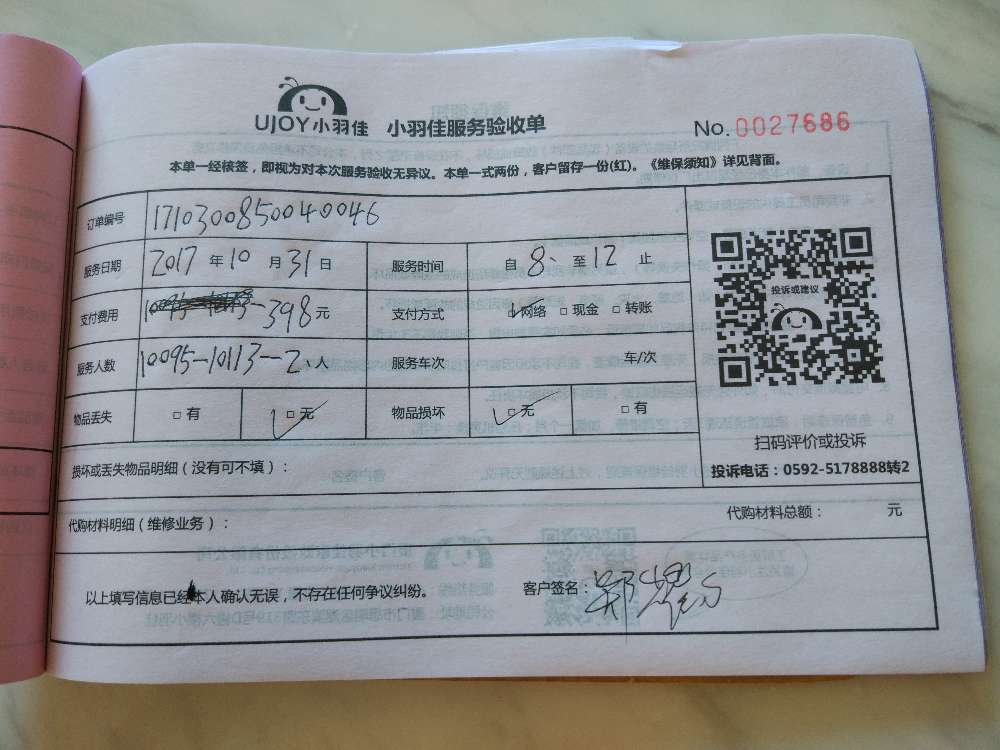 UJOY小羽佳 小羽佳服务验收单 No.0027686
本单一经核签，即视为对本次服务验收无异议。本单一式两份，客户留存一份(红)。《维保须知》详见背面。
订单编号 1710300850040046
服务日期 2017 年 10 月 31 日 服务时间 自 8 至 12 止
支付费用 398元 支付方式 ☑网络 □现金 □转账
服务人数 10095-10113-2人 服务车次 车/次
物品丢失 □有 ☑无 物品损坏 ☑无 □有
投诉或建议
扫码评价或投诉
投诉电话：0592-5178888转2
损坏或丢失物品明细（没有可不填）：
代购材料明细（维修业务）： 代购材料总额： 元
以上填写信息已经本人确认无误，不存在任何争议纠纷。 客户签名：